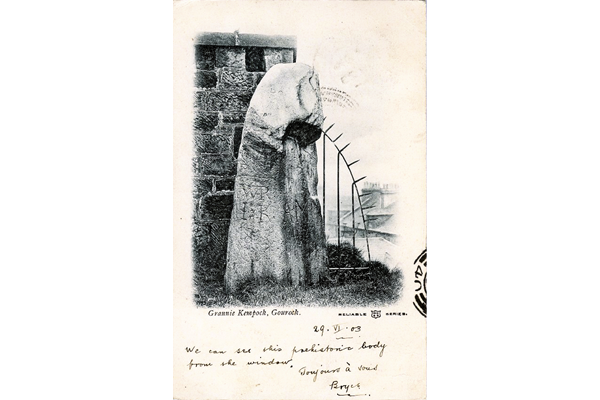 Grannie Kempoch, Gourock.
RELIABLE SERIES.
29. VI. 03
We can see this prehistoric body
from the window.
Toujours à vous
Bryce